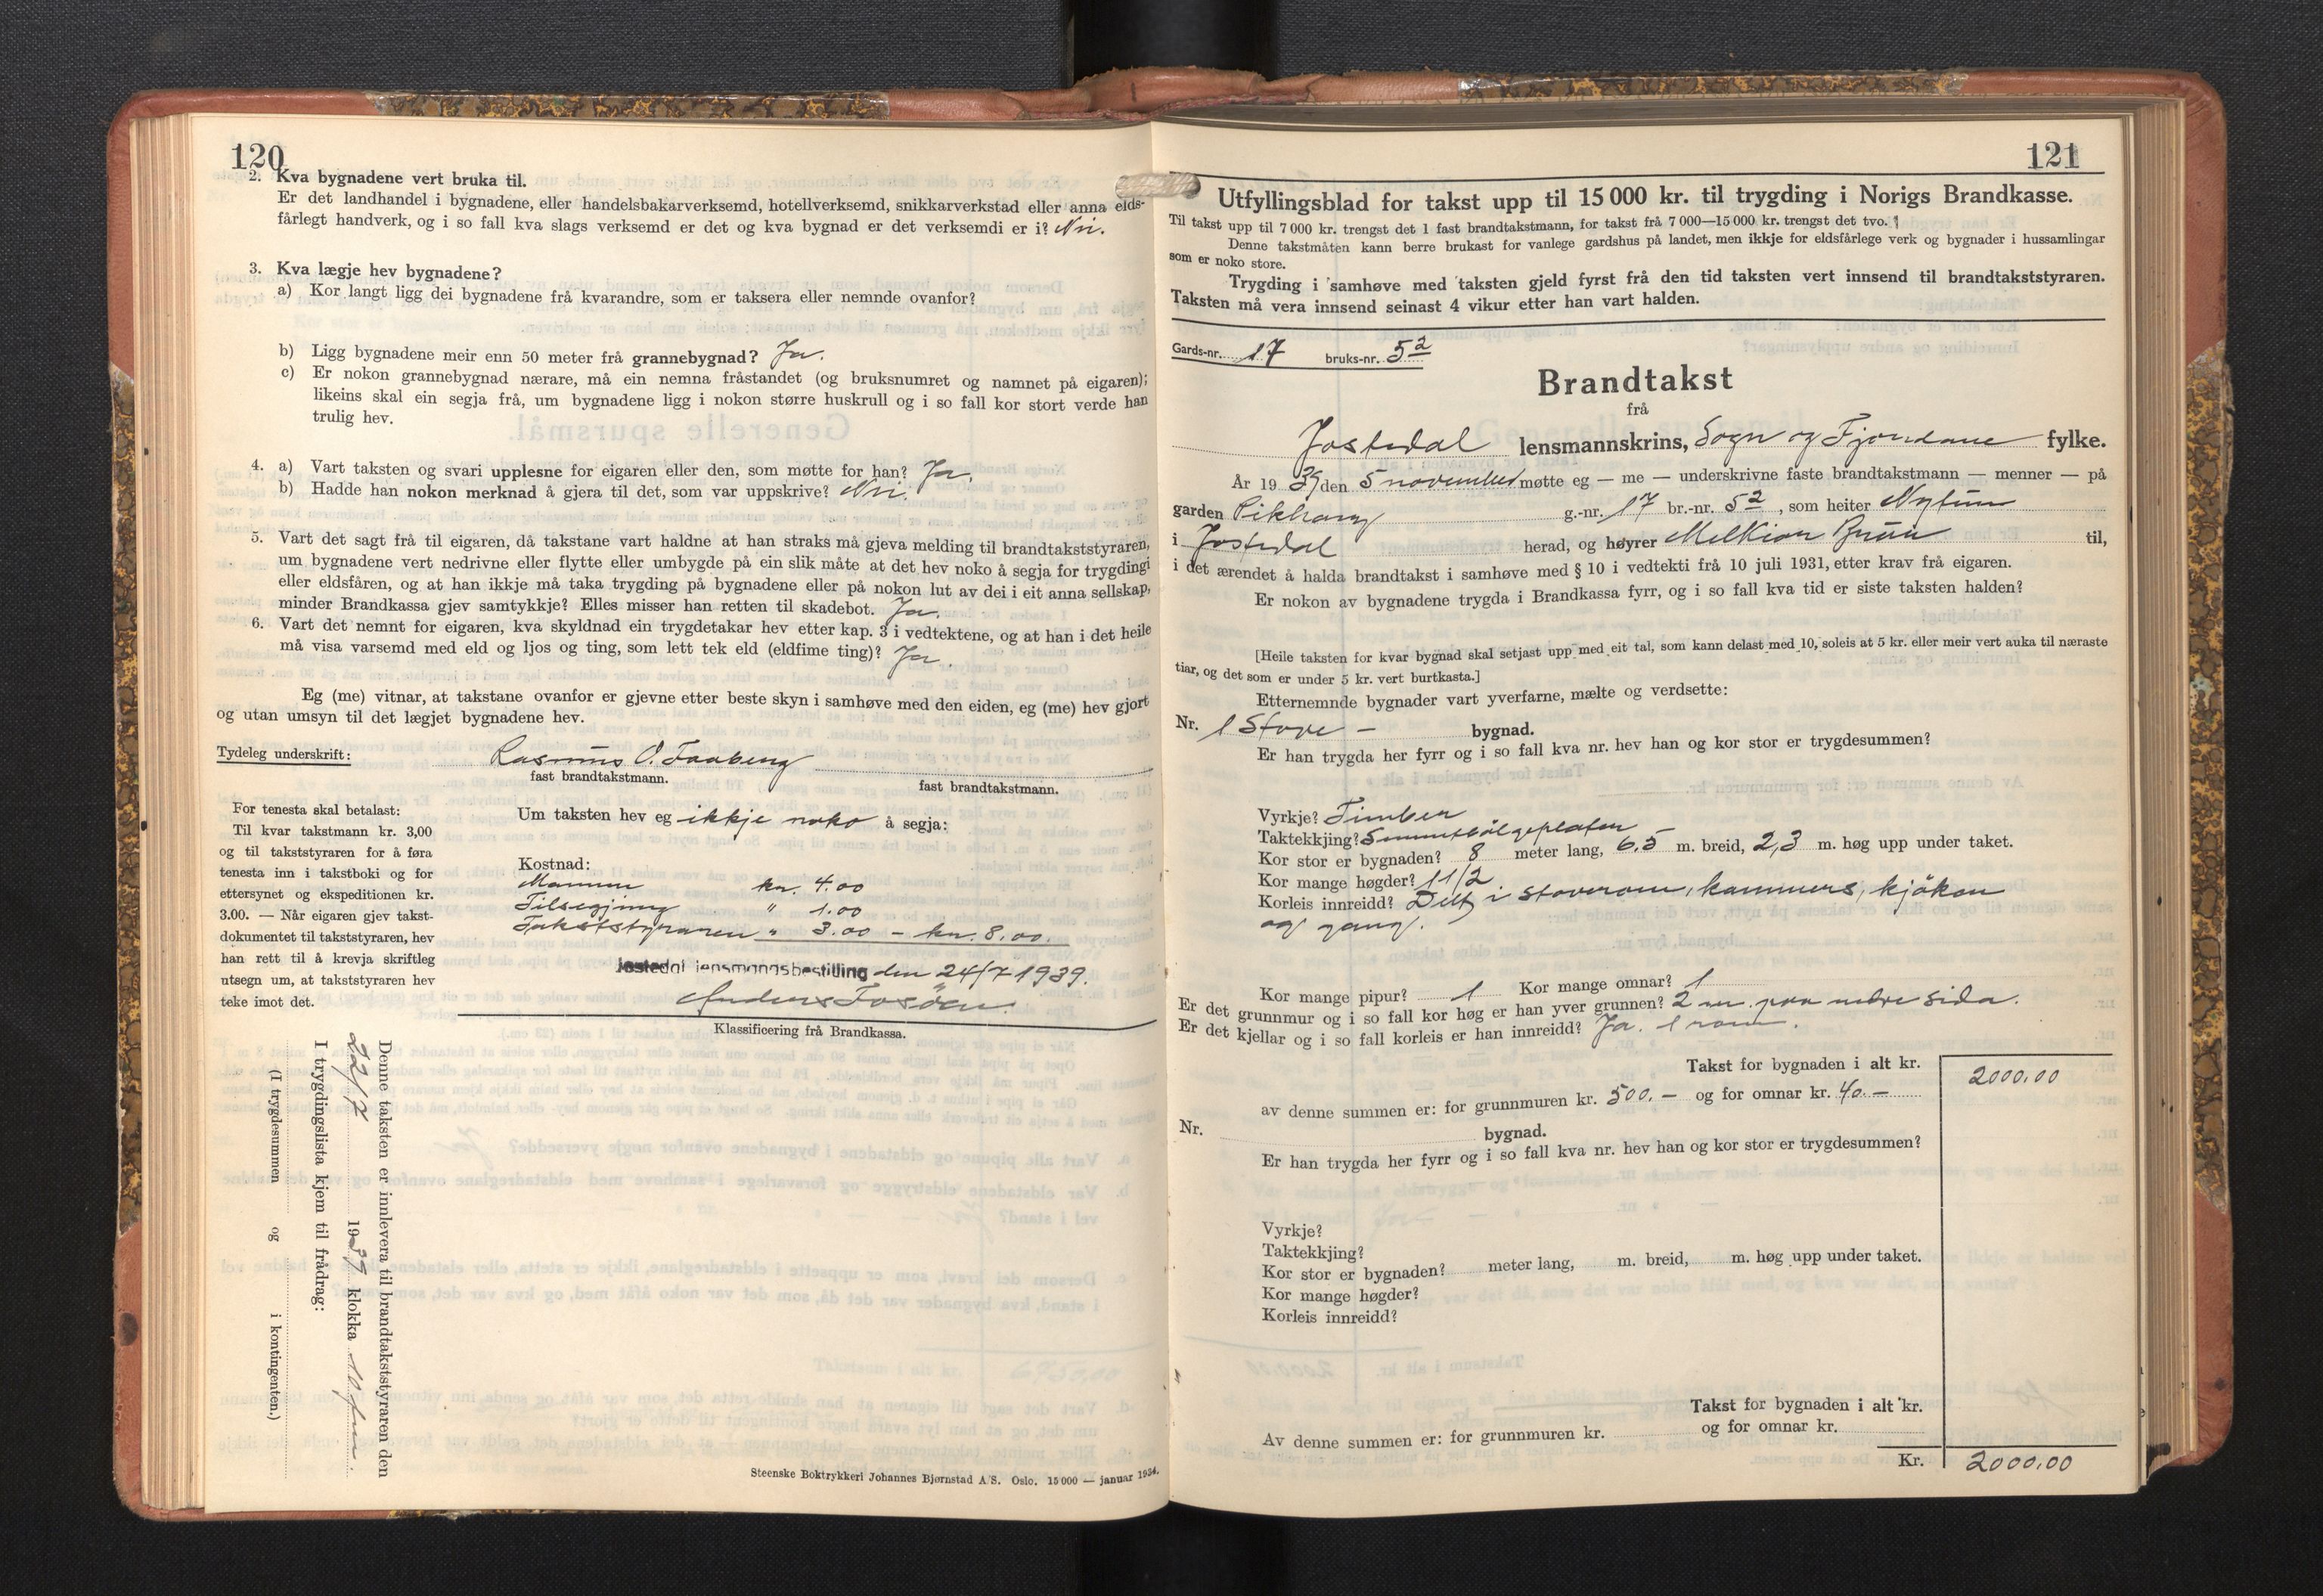 120
2. Kva bygnadene vert bruka til.
Er det landhandel i bygnadene, eller handelsbakarverksemd, hotellverksemd, snikkarverkstad eller anna elds-
fårlegt handverk, og i so fall kva slags verksemd er det og kva bygnad er det verksemdi er i? Nei.
3. Kva lægje hev bygnadene?
a) Kor langt ligg dei bygnadene frå kvarandre, som er taksera eller nemnde ovanfor?
b) Ligg bygnadene meir enn 50 meter frå grannebygnad? Ja.
c) Er nokon grannebygnad nærare, må ein nemna fråstandet (og bruksnumret og namnet på eigaren);
likeins skal ein segja frå, um bygnadene ligg i nokon større huskrull og i so fall kor stort verde han
trulig hev.
4. a) Vart taksten og svari upplesne for eigaren eller den, som møtte for han? Ja.
b) Hadde han nokon merknad å gjera til det, som var uppskrive? Nei.
5. Vart det sagt frå til eigaren, då takstane vart haldne at han straks må gjeva melding til brandtakststyraren,
um bygnadene vert nedrivne eller flytte eller umbygde på ein slik måte at det hev noko å segja for trygdingi
eller eldsfåren, og at han ikkje må taka trygding på bygnadene eller på nokon lut av dei i eit anna sellskap,
minder Brandkassa gjev samtykkje? Elles misser han retten til skadebot. Ja.
6. Vart det nemnt for eigaren, kva skyldnad ein trygdetakar hev etter kap. 3 i vedtektene, og at han i det heile
må visa varsemd med eld og ljos og ting, som lett tek eld (eldfime ting)? Ja.
Eg (me) vitnar, at takstane ovanfor er gjevne etter beste skyn i samhøve med den eiden, eg (me) hev gjort
og utan umsyn til det lægjet bygnadene hev.
Tydeleg underskrift: Rasmus O. Faaberg
fast brandtakstmann. fast brandtakstmann.
For tenesta skal betalast:
Til kvar takstmann kr. 3,00
og til takststyraren for å føra
tenesta inn i takstboki og for
ettersynet og ekspeditionen kr.
3.00. — Når eigaren gjev takst-
dokumentet til takststyraren, hev
han rett til å krevja skriftleg
utsegn um, at takststyraren hev
teke imot det.
Um taksten hev eg ikkje noko å segja:
Kostnad:
Mannen kr. 4.00
Tilsegjing " 1.00
Takststyraren " 3.00 - kr. 8.00.
Jostedal lensmannsbestilling den 24/7 1939.
Anders Fosøen.
Klassificering frå Brandkassa.
Denne taksten er innlevera til brandtakststyraren den
22/7 1939 klokka 10 fm.
I trygdingslista kjem til frådrag:
(I trygdesummen og i kontingenten.)
Steenske Boktrykkeri Johannes Bjørnstad A/S. Oslo. 15 000 — januar 1934.
121
Utfyllingsblad for takst upp til 15 000 kr. til trygding i Norigs Brandkasse.
Til takst upp til 7 000 kr. trengst det 1 fast brandtakstmann, for takst frå 7 000—15 000 kr. trengst det tvo.
Denne takstmåten kann berre brukast for vanlege gardshus på landet, men ikkje for eldsfårlege verk og bygnader i hussamlingar
som er noko store.
Trygding i samhøve med taksten gjeld fyrst frå den tid taksten vert innsend til brandtakststyraren.
Taksten må vera innsend seinast 4 vikur etter han vart halden.
Gards-nr. 17 bruks-nr. 52
Brandtakst
frå
Jostedal lensmannskrins, Sogn og Fjordane fylke.
År 1939 den 5 november møtte eg — me — underskrivne faste brandtakstmann — menner — på
garden g.-nr. 17 br.-nr. 52, som heiter Nytun
i Jostedal herad, og høyrer Melkior Bruu til,
i det ærendet å halda brandtakst i samhøve med § 10 i vedtekti frå 10 juli 1931, etter krav frå eigaren.
Er nokon av bygnadene trygda i Brandkassa fyrr, og i so fall kva tid er siste taksten halden?
[Heile taksten for kvar bygnad skal setjast upp med eit tal, som kann delast med 10, soleis at 5 kr. eller meir vert auka til næraste
tiar, og det som er under 5 kr. vert burtkasta.]
Etternemnde bygnader vart yverfarne, mælte og verdsette:
Nr. 1 Stove - bygnad.
Er han trygda her fyrr og i so fall kva nr. hev han og kor stor er trygdesummen?
Vyrkje? Timber
Taktekkjing? Sementbølgeplater
Kor stor er bygnaden? 8 meter lang, 6.5 m. breid, 2,3 m. høg upp under taket.
Kor mange høgder? 1 1/2
Korleis innreidd? Delt i stoverom, kammers, kjøken
og gang.
Kor mange pipur? 1 Kor mange omnar? 1
Er det grunnmur og i so fall kor høg er han yver grunnen? 2 m. paa nedre sida.
Er det kjellar og i so fall korleis er han innreidd? Ja. 1 rom.
Takst for bygnaden i alt kr. 2000.00
av denne summen er: for grunnmuren kr. 500.— og for omnar kr. 40.—
Nr. bygnad.
Er han trygda her fyrr og i so fall kva nr. hev han og kor stor er trygdesummen?
Vyrkje?
Taktekkjing?
Kor stor er bygnaden? meter lang, m. breid, m. høg upp under taket.
Kor mange høgder?
Korleis innreidd?
Takst for bygnaden i alt kr.
Av denne summen er: for grunnmuren kr. og for omnar kr.
Kr. 2000.00